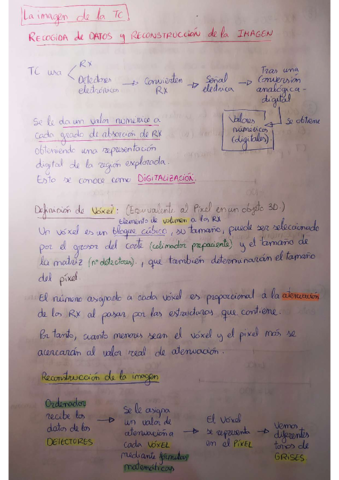 La imagen de la TC
RECOGIDA DE DATOS y RECONSTRUCCIÓN de la IMAGEN
TC usa
RX
Detectores electrónicos
→ Convierten RX
→ Señal eléctrica
→ Tras una conversión analógica-digital
Se obtiene
Valores numéricos (digitales)
Se le da un valor numérico a
cada grado de absorción de RX
obteniendo una representación
digital de la región explorada.
Esto se conoce como DIGITALIZACIÓN.
Definición de Vóxel: (Equivalente al Pixel en un objeto 3D)
elemento de volumen a los RX
Un vóxel es un bloque cúbico, su tamaño, puede ser seleccionado
por el grosor del corte (colimador prepaciente) y el tamaño de
la matriz (nº detectores), que también determinarán el tamaño
del píxel
El número asignado a cada vóxel es proporcional a la atenuación
de los RX al pasar por las estructuras que contiene.
Por tanto, cuanto menores sean el vóxel y el pixel más se
acercarán al valor real de atenuación.
Reconstrucción de la imagen
Ordenador
recibe los
datos de los
DETECTORES
→ Se le asigna
un valor de
atenuación a
cada VÓXEL
mediante fórmulas
matemáticas
→ El Vóxel
se representa
en el PÍXEL
→ Vemos
diferentes
tonos de
GRISES.